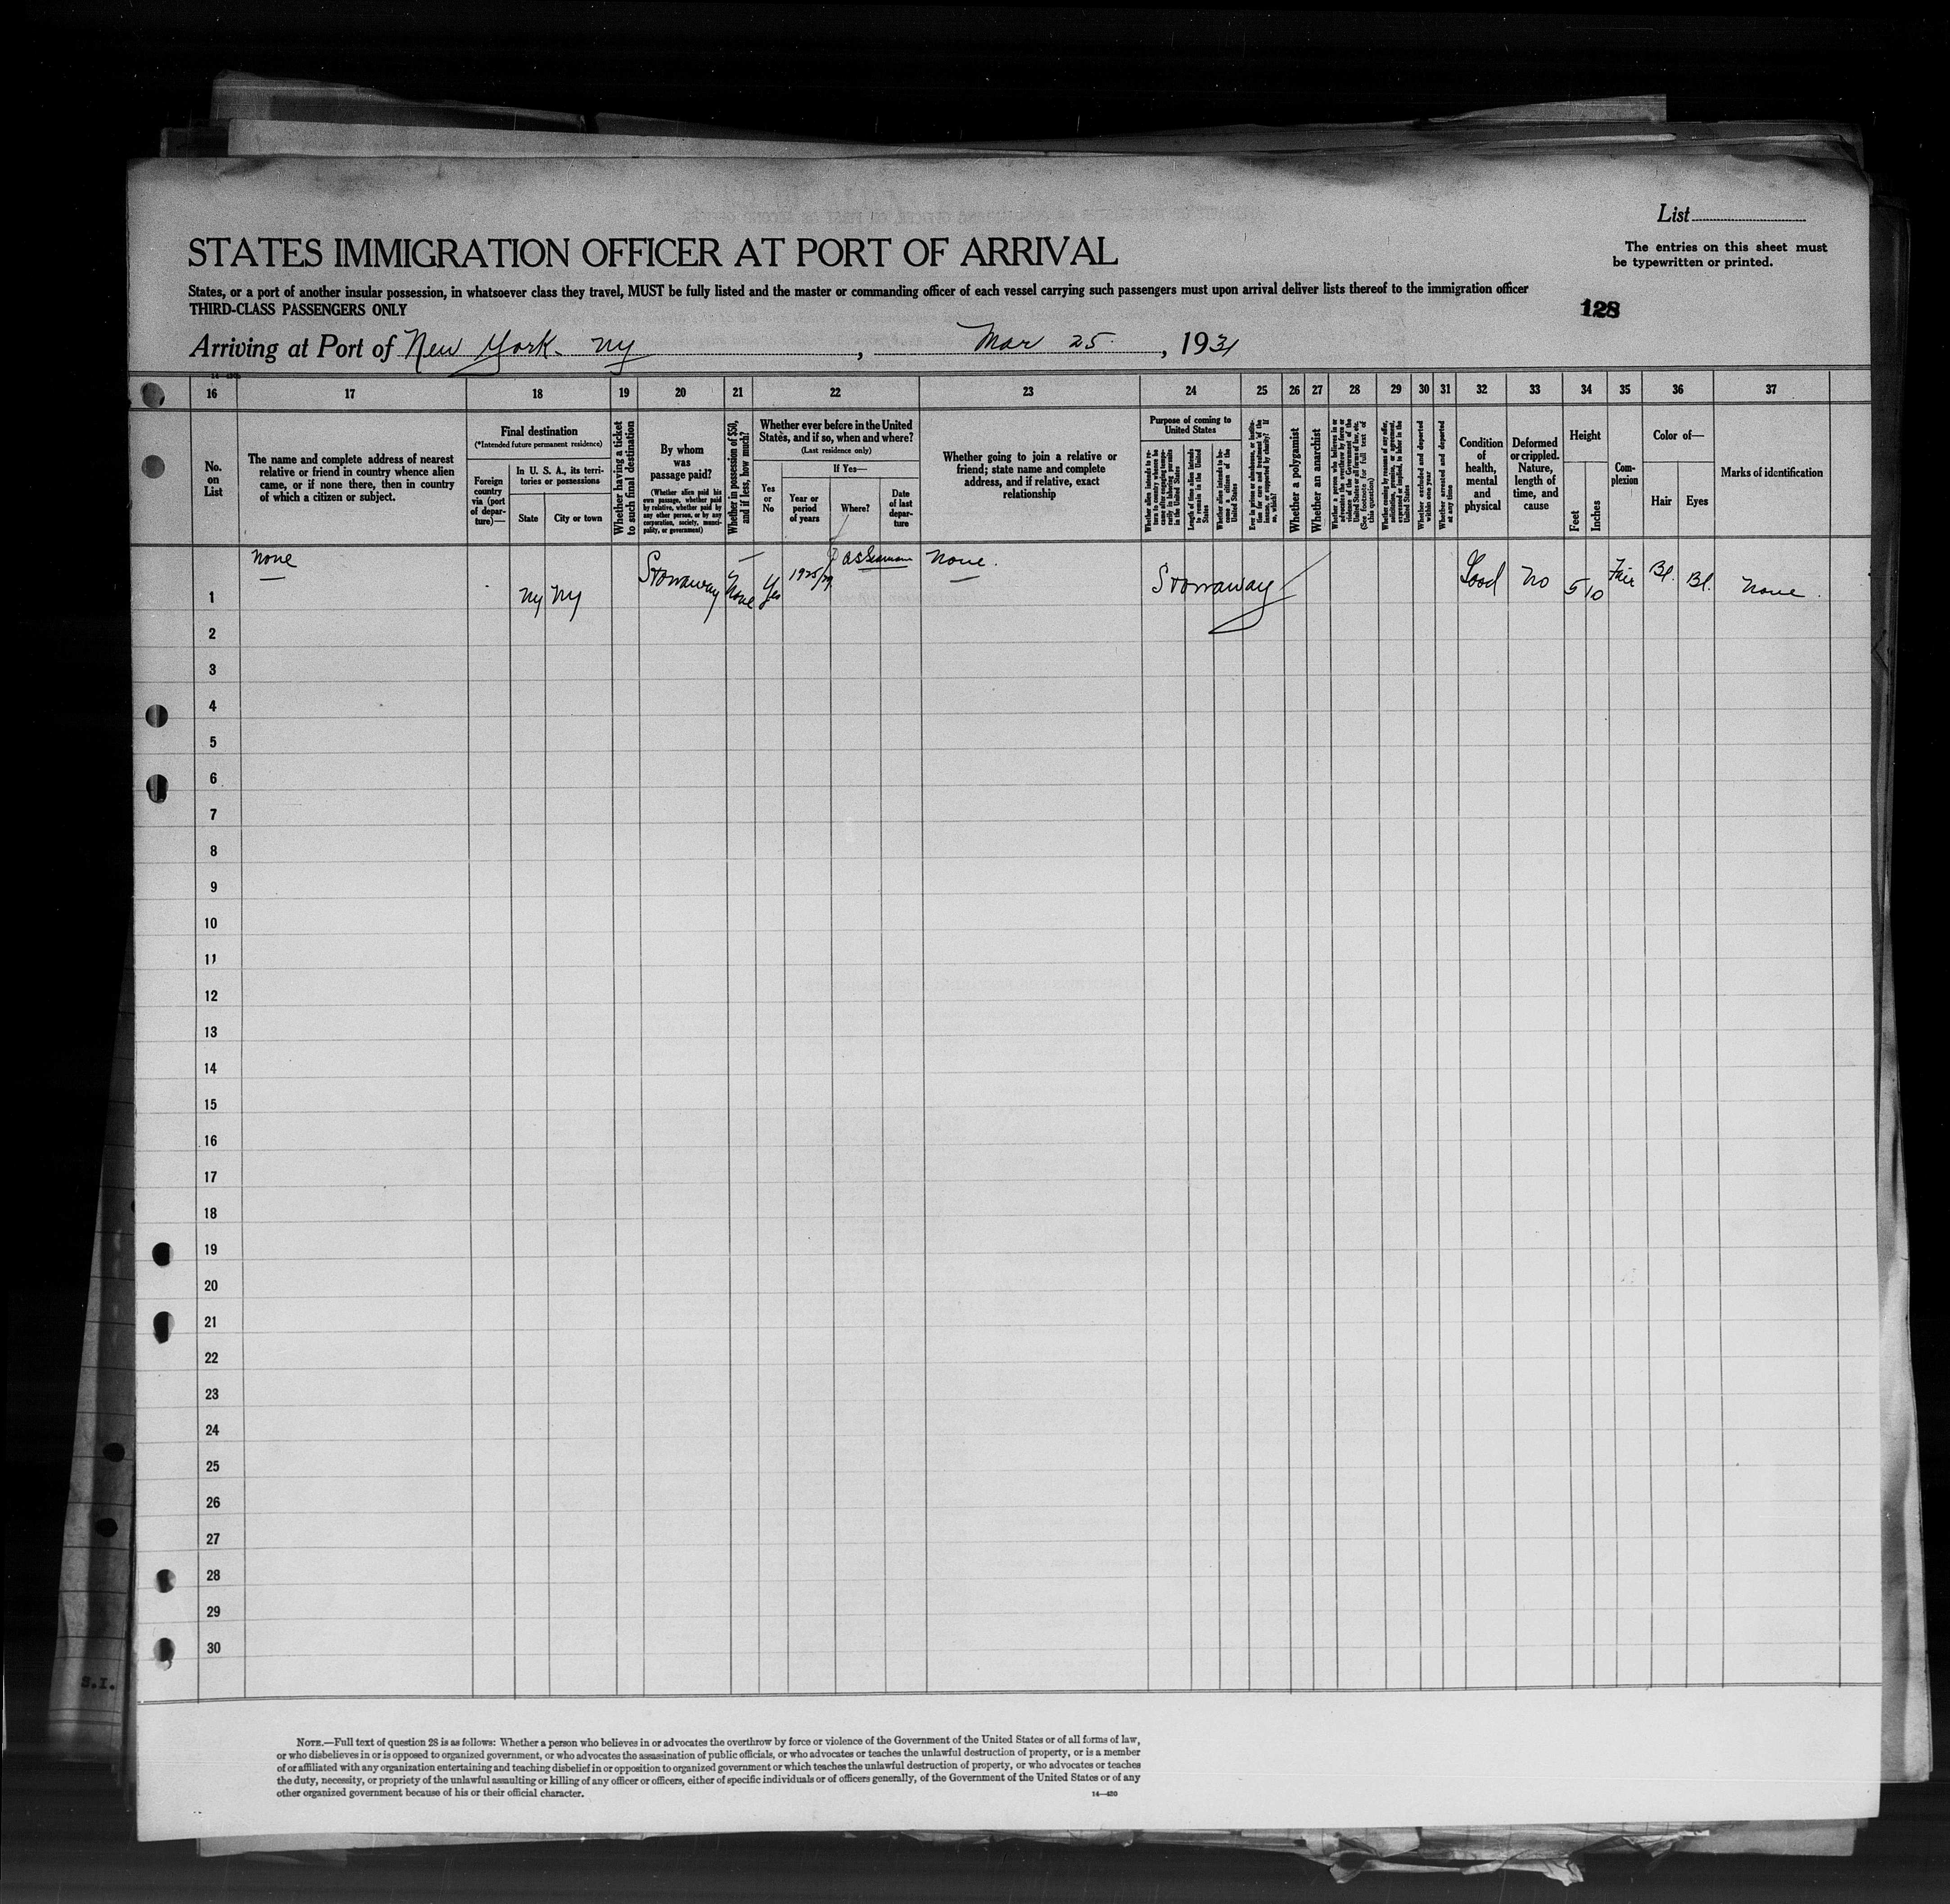 List
The entries on this sheet must
be typewritten or printed.
STATES IMMIGRATION OFFICER AT PORT OF ARRIVAL
States, or a port of another insular possession, in whatsoever class they travel, MUST be fully listed and the master or commanding officer of each vessel carrying such passengers must upon arrival deliver lists thereof to the immigration officer
THIRD-CLASS PASSENGERS ONLY
128
Arriving at Port of New York. NY, Mar 25, 1931
16 17 18 19 20 21 22 23 24 25 26 27 28 29 30 31 32 33 34 35 36 37
No.
on
List
The name and complete address of nearest
relative or friend in country whence alien
came, or if none there, then in country
of which a citizen or subject.
Final destination
(*Intended future permanent residence)
Foreign
country
via (port
of depar-
ture)—
In U. S. A., its terri-
tories or possessions
State
City or town
Whether having a ticket
to such final destination
By whom
was
passage paid?
(Whether alien paid his
own passage, whether paid
by relative, whether paid by
any other person, or by any
corporation, society, munici-
pality, or government)
Whether in possession of $50,
and if less, how much?
Whether ever before in the United
States, and if so, when and where?
(Last residence only)
Yes
or
No
If Yes—
Year or
period
of years
Where?
Date
of last
depar-
ture
Whether going to join a relative or
friend; state name and complete
address, and if relative, exact
relationship
Purpose of coming to
United States
Length of time alien intends
to remain in the United
States
Whether alien intends to be-
come a citizen of the
United States
Whether a polygamist
Whether an anarchist
Whether excluded and deported
within one year
Whether arrested and deported
at any time
Condition
of
health,
mental
and
physical
Deformed
or crippled.
Nature,
length of
time, and
cause
Height
Feet
Inches
Com-
plexion
Color of—
Hair
Eyes
Marks of identification
1 none NY NY Stowaway None Yes 1925/29 as Seaman None. Stowaway Good No 5 10 Fair Bl. Bl. None.
2
3
4
5
6
7
8
9
10
11
12
13
14
15
16
17
18
19
20
21
22
23
24
25
26
27
28
29
30
S.I.
NOTE.—Full text of question 28 is as follows: Whether a person who believes in or advocates the overthrow by force or violence of the Government of the United States or of all forms of law,
or who disbelieves in or is opposed to organized government, or who advocates the assassination of public officials, or who advocates or teaches the unlawful destruction of property, or is a member
of or affiliated with any organization entertaining and teaching disbelief in or opposition to organized government or which teaches the unlawful destruction of property, or who advocates or teaches
the duty, necessity, or propriety of the unlawful assaulting or killing of any officer or officers, either of specific individuals or of officers generally, of the Government of the United States or of any
other organized government because of his or their official character.
14—430